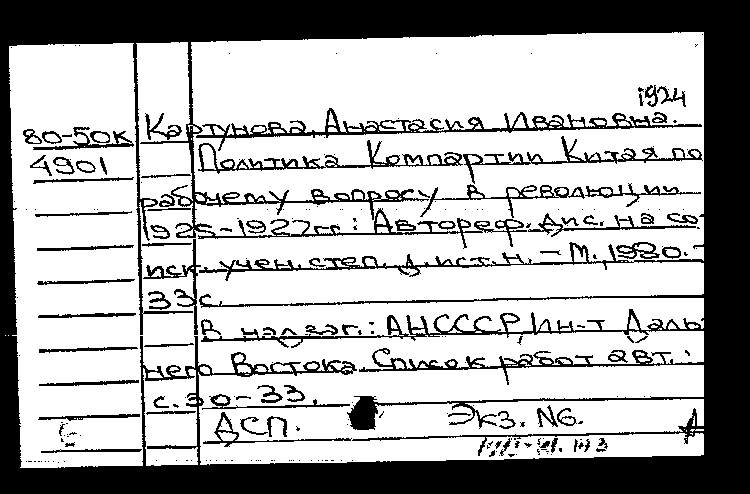 1924
80-50к Картунова, Анастасия Ивановна.
4901 Политика Компартии Китая по
рабочему вопросу в революции
1925-1927гг.: Автореф. дис. на со-
иск. учен. степ. д. ист. н. - М., 1980. -
33 с.
В надзаг.: АН СССР, Ин-т Даль
него Востока. Список работ авт.:
с. 30-33.
ДСП. Экз. N6.